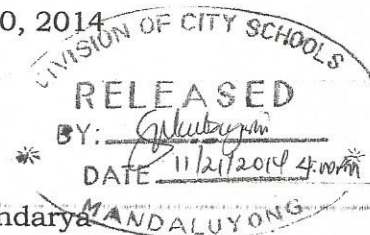 0, 2014
DIVISION OF CITY SCHOOLS
RELEASED
BY:
DATE 11/21/2014 4:00PM
ndarya
MANDALUYONG